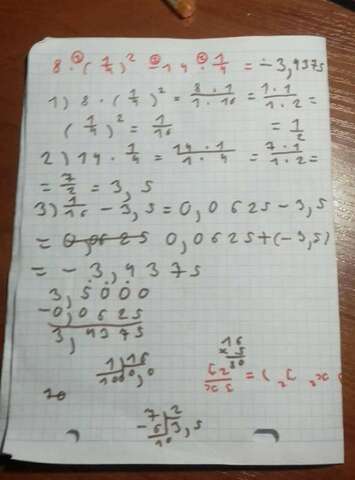 8 · (1/4)² - 14 · 1/4 = -3,4375
1) 8 · (1/4)² = 8 · 1 / 1 · 16 = 1 · 1 / 1 · 2 =
(1/4)² = 1/16 = 1/2
2) 14 · 1/4 = 14 · 1 / 1 · 4 = 7 · 1 / 1 · 2 =
= 7/2 = 3,5
3) 1/16 - 3,5 = 0,0625 - 3,5
= 0,0625 0,0625+(-3,5)
= -3,4375
3,5000
-0,0625
3,4375
16
× 5
80
7 2
- 6 3,5
10